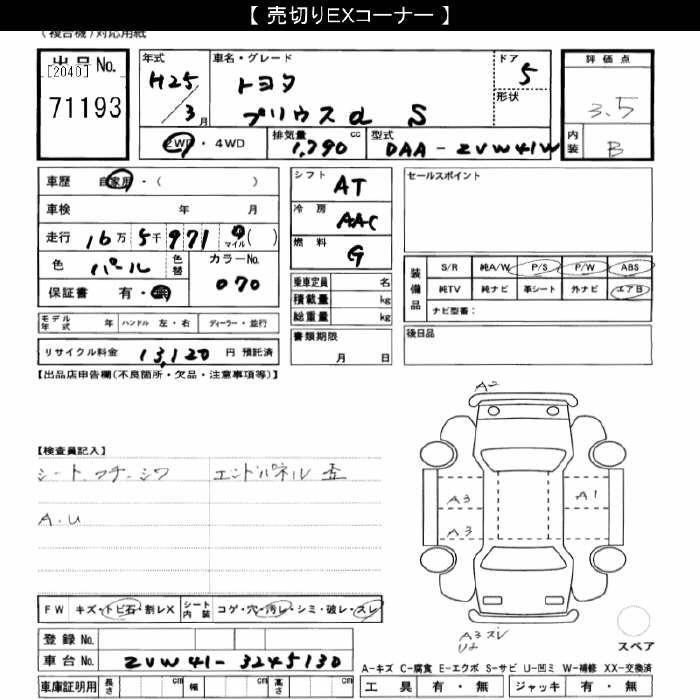 【 売切りEXコーナー 】
(複合機)対応用紙
出品No.
[2040]
71193
年式
H25/3月
車名・グレード
トヨタ
プリウスα S
ドア
5
形状
評価点
3.5
内装
B
2WD・4WD
排気量 cc
1,790
型式
DAA-ZVW41W
車歴 自家用・( )
車検 年 月
走行 16万 5千971 マイル( )
色 パール 色替 カラーNo. 070
保証書 有・無
シフト AT
冷房 AAC
燃料 G
乗車定員 名
積載量 kg
総重量 kg
セールスポイント
装備品
S/R 純A/W P/S P/W ABS
純TV 純ナビ 革シート 外ナビ エアB
ナビ型番:
モデル年式 年 ハンドル 左・右 ディーラー・並行
リサイクル料金 13,120 円 預託済
書類期限
月 日
後日品
【出品店申告欄(不良箇所・欠品・注意事項等)】
【検査員記入】
シート コゲ・シワ エンドパネル 歪
A.U
A2
A3 A1
A3
A3 スレ
U2
FW キズ・トビ石・割レX シート内装 コゲ・穴・汚レ・シミ・破レ・スレ
登録No.
車台No. ZVW41-3245130
スペア
A-キズ C-腐食 E-エクボ S-サビ U-凹ミ W-補修 XX-交換済
車庫証明用 長さ cm 幅 cm 高さ cm
工具 有・無 ジャッキ 有・無